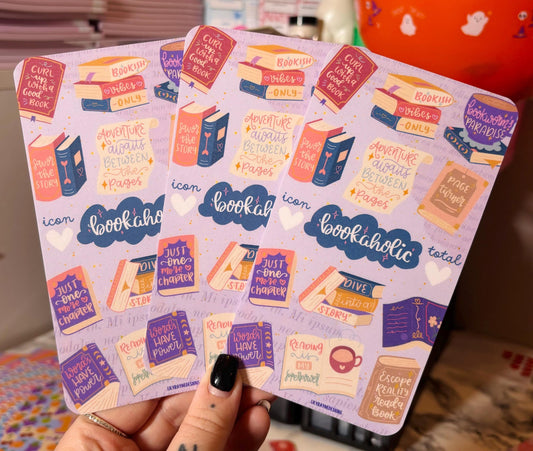 CURL
up
with a
Good
BOOK
BOOKISH
vibes
ONLY
savor the
STORY
ADVENTURE
awaits
BETWEEN
the
Pages
icon
bookaholic
JUST
one
more
CHAPTER
DIVE
STORY
Words
HAVE
POWER
CURL
up
with a
Good
BOOK
BOOKISH
vibes
ONLY
savor
THE
STORY
ADVENTURE
awaits
BETWEEN
the
Pages
icon
Words
HAVE
POWER
READING
CURL
up
with a
Good
BOOK
BOOKISH
vibes
ONLY
bookworm's
PARADISE
savor
the
STORY
ADVENTURE
awaits
BETWEEN
the
Pages
PAGE
turner
icon
bookaholic
total
JUST
one
more
CHAPTER
DIVE
into a
STORY
Words
HAVE
POWER
READING
is
MY
Superpower
Escape
REALITY
Read a
Book